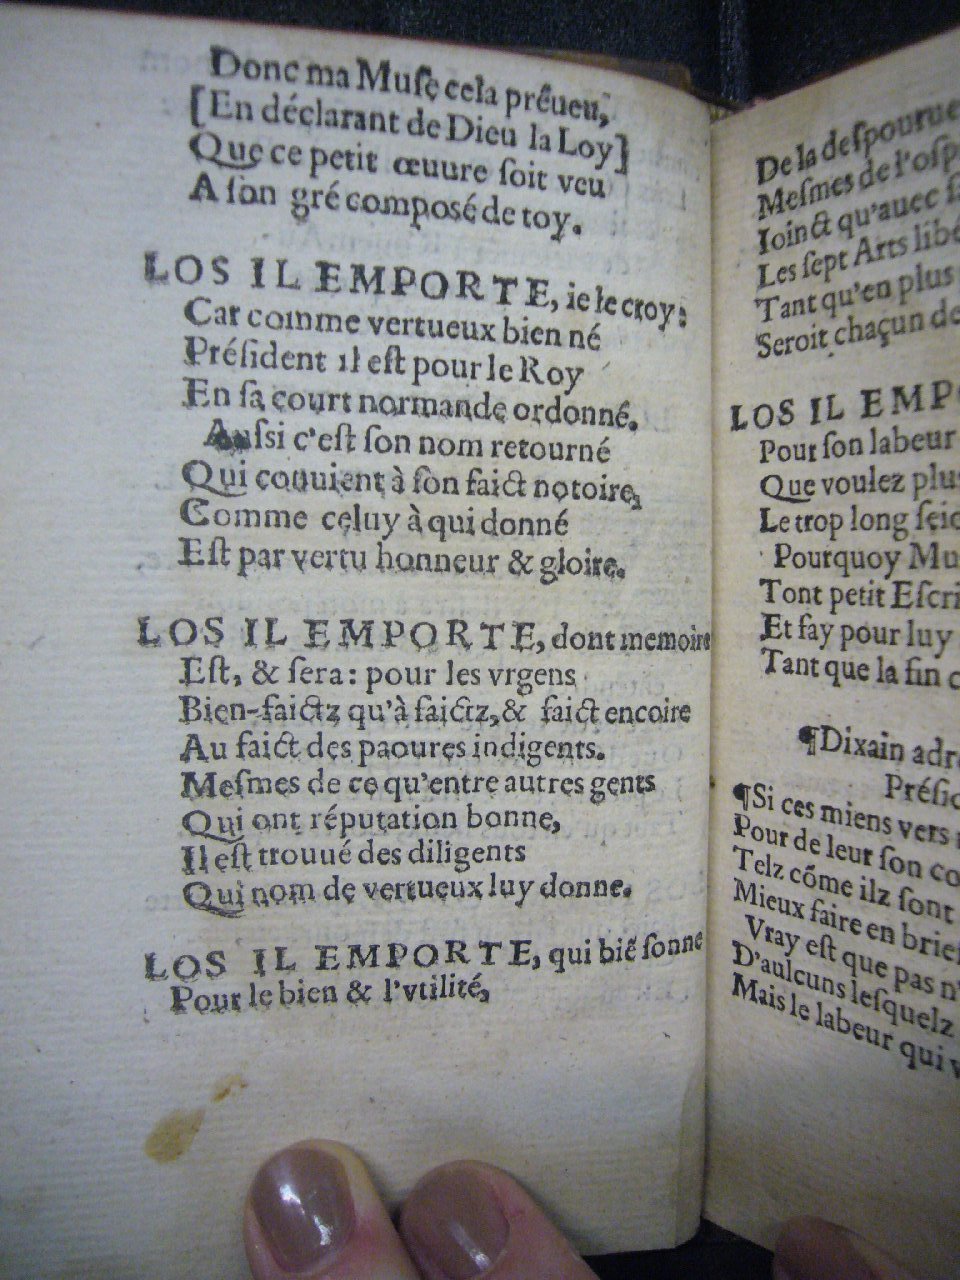 Donc ma Muſe cela prêueu,
[En déclarant de Dieu la Loy]
Que ce petit œuure ſoit veu
A ſon gré composé de toy.
LOS IL EMPORTE, ie le croy:
Car comme vertueux bien né
Préſident il eſt pour le Roy
En ſa court normande ordonné.
Auſsi c'eſt ſon nom retourné
Qui conuient à ſon faict notoire,
Comme celuy à qui donné
Eſt par vertu honneur & gloire.
LOS IL EMPORTE, dont memoire
Eſt, & ſera: pour les vrgens
Bien-faictz qu'à faictz, & faict encoire
Au faict des paoures indigents.
Meſmes de ce qu'entre autres gents
Qui ont réputation bonne,
Il eſt trouué des diligents
Qui nom de vertueux luy donne.
LOS IL EMPORTE, qui biẽ ſonne
Pour le bien & l'vtilité,
De la deſpourue
Meſmes de l'oſp
Ioinct qu'auec ſ
Les ſept Arts libé
Tant qu'en plus
Seroit chaçun de
LOS IL EMP
Pour ſon labeur
Que voulez plus
Le trop long ſei
Pourquoy Mu
Tont petit Eſcri
Et fay pour luy
Tant que la fin
¶Dixain adr
Préſi
¶Si ces miens vers
Pour de leur ſon co
Telz cõme ilz ſont
Mieux faire en brief
Vray eſt que pas n'
D'aulcuns leſquelz
Mais le labeur qui v